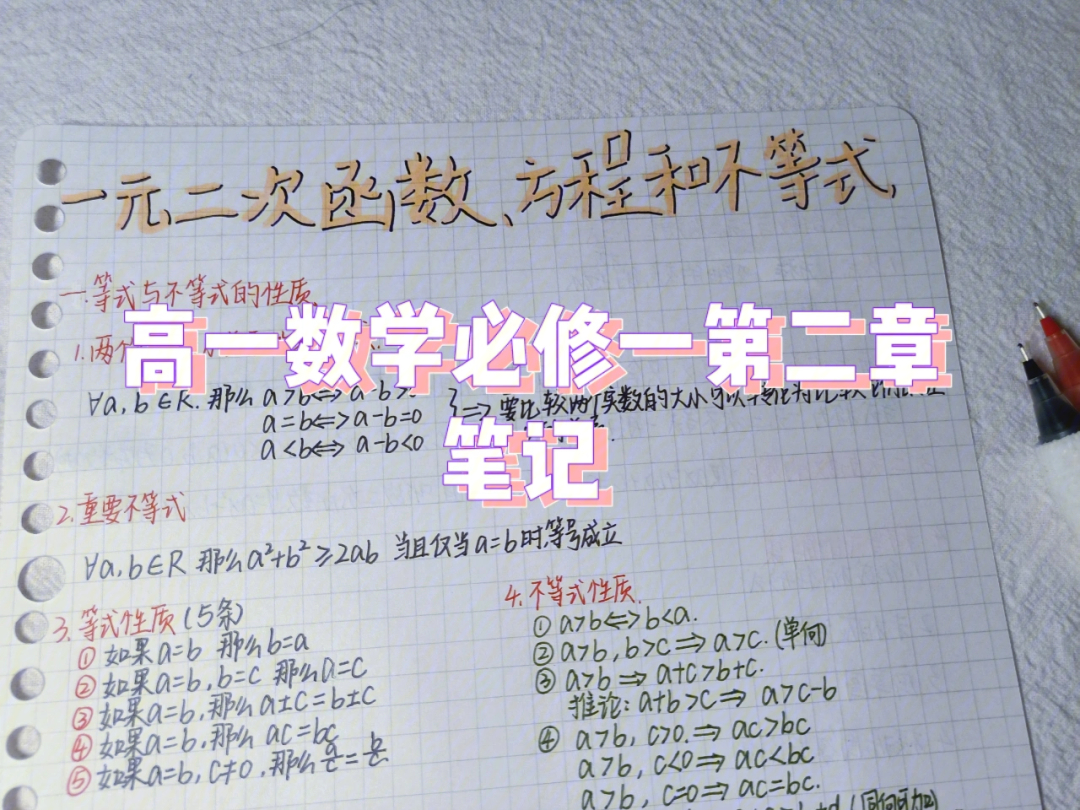 一元二次函数、方程和不等式
一.等式与不等式的性质
高一数学必修一第二章
笔记
1.两个
∀a,b∈R.那么 a>b⇔a-b>
a=b⇔a-b=0
a<b⇔a-b<0
}⇒要比较两个实数的大小可以转化为比较它们的
2.重要不等式
∀a,b∈R 那么a²+b²≥2ab 当且仅当a=b时,等号成立
3.等式性质(5条)
① 如果a=b 那么b=a
② 如果a=b,b=c 那么a=c
③ 如果a=b,那么a±c=b±c
④ 如果a=b,那么 ac=bc
⑤ 如果a=b,c≠0,那么a/c=b/c
4.不等式性质
① a>b⇔b<a.
② a>b,b>c⇒a>c.(单向)
③ a>b⇒a+c>b+c.
推论:a+b>c⇒a>c-b
④ a>b,c>0.⇒ac>bc
a>b,c<0⇒ac<bc
a>b,c=0⇒ac=bc.
(同向可加)